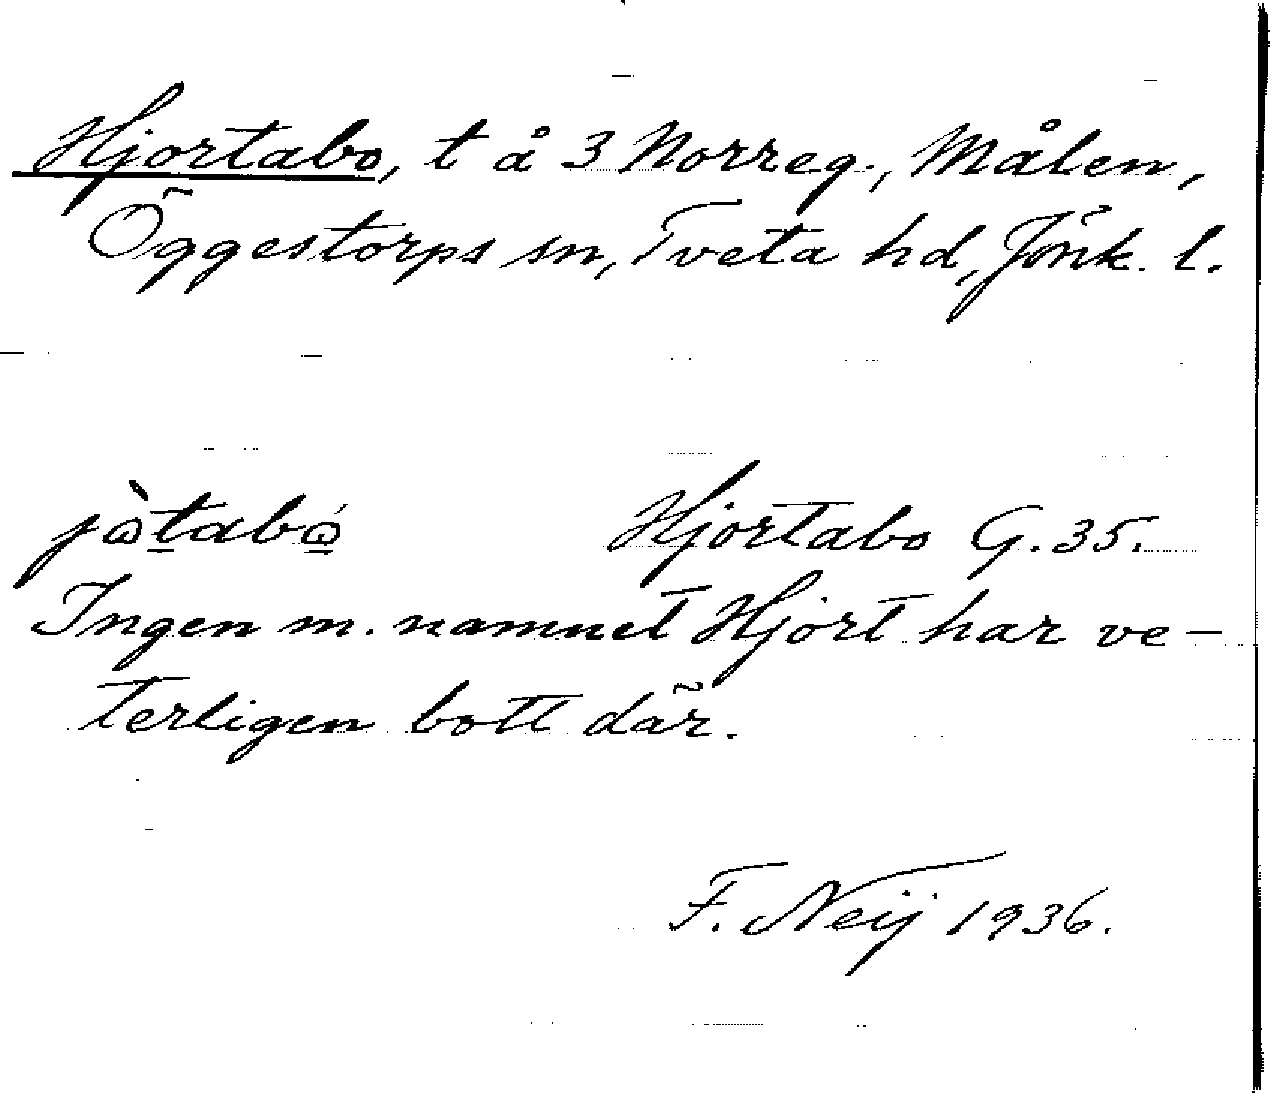 Hjortabo, t å 3 Norreg., Målen,
Öggestorps sn, Tveta hd, Jönk. l.
jɷ̀tabɷ́ Hjortabo G. 35.
Ingen m. namnet Hjort har ve-
terligen bott där.
F. Neij 1936.